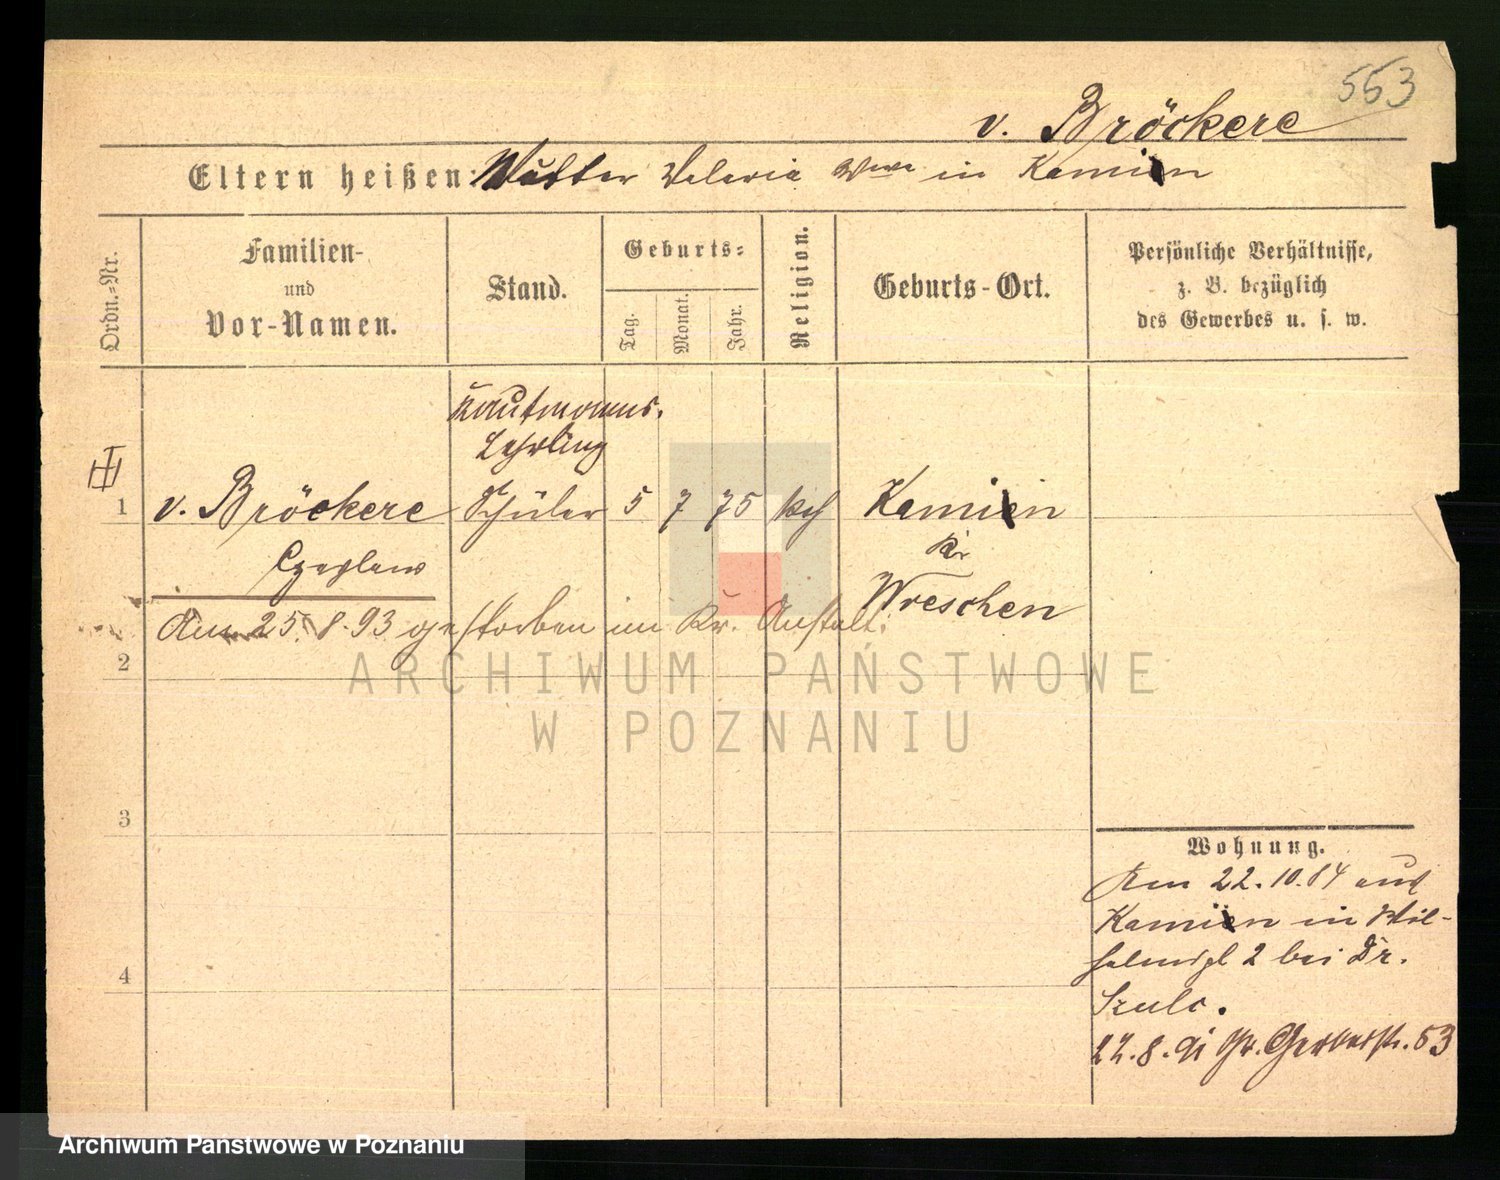 553
v. Bröckere
Eltern heißen: Mutter Valeria Wwe in Kamien
Ordn.-Nr.
Familien-
und
Vor-Namen.
Stand.
Geburts-
Tag.
Monat.
Jahr.
Religion.
Geburts-Ort.
Persönliche Verhältnisse,
z. B. bezüglich
des Gewerbes u. s. w.
Kaufmanns-
Lehrling
1 v. Bröckere Schüler 5 7 75 kth Kamien
Czeslaw
Kr
Wreschen
Am 25. 8. 93 gestorben im Kr. Anstalt.
2
3
4
Wohnung.
Am 22. 10. 84 aus
Kamien in Wil-
helmspl 2 bei Dr.
Szulc.
22. 8. 91 Gr. Gerberstr. 53
ARCHIWUM PAŃSTWOWE
W POZNANIU
Archiwum Państwowe w Poznaniu